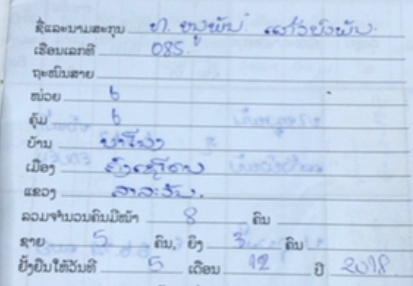 ຊື່ແລະນາມສະກຸນ ທ. ໜູພັນ ແກ້ວບົວພັນ
ເຮືອນເລກທີ 085.
ຖະໜົນສາຍ
ໜ່ວຍ 6
ຄຸ້ມ 6
ບ້ານ
ເມືອງ
ແຂວງ ສາລະວັນ.
ລວມຈຳນວນຄົນມີໜ້າ 8 ຄົນ
ຊາຍ 5 ຄົນ, ຍິງ 3 ຄົນ
ຢັ້ງຢືນໃຫ້ວັນທີ 5 ເດືອນ 12 ປີ 2018